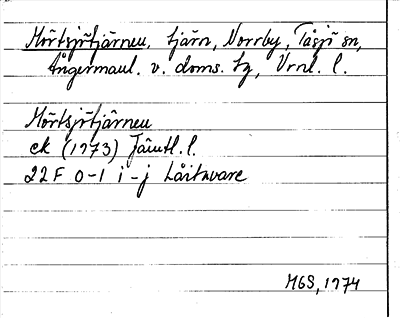 Mörtsjötjärnen, tjärn, Norrby, Tåsjö sn,
Ångermanl. v. doms. tg, Vrnl. l.
Mörtsjötjärnen
ek (1973) Jämtl. l.
22F 0-1 i-j Låitavare
MGS, 1974